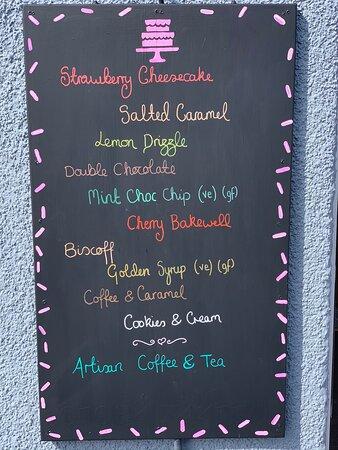 Strawberry Cheesecake
Salted Caramel
Lemon Drizzle
Double Chocolate
Mint Choc Chip (ve) (gf)
Cherry Bakewell
Biscoff
Golden Syrup (ve) (gf)
Coffee & Caramel
Cookies & Cream
Artisan Coffee & Tea